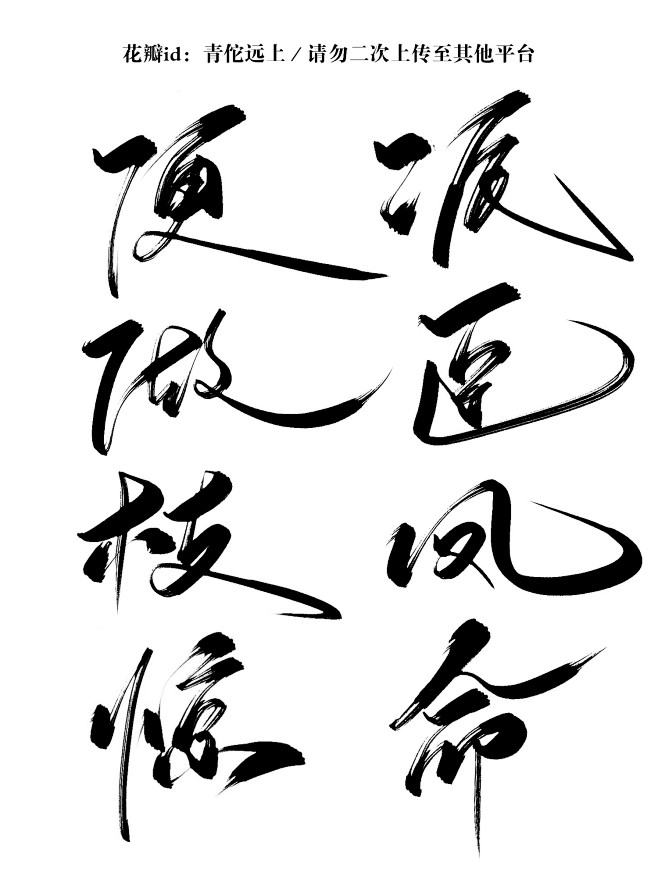 花瓣id：青佗远上 / 请勿二次上传至其他平台
便
做 匠
枝 凤
惊 命